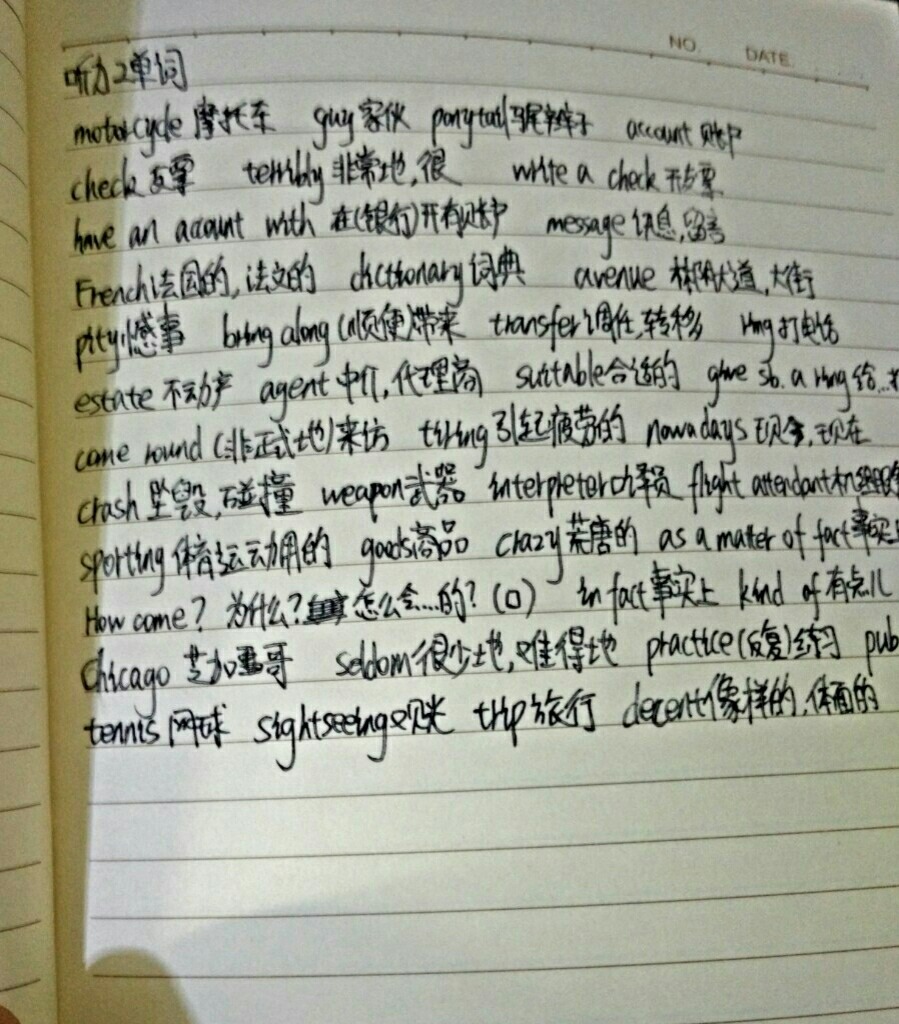 NO. DATE.
听力2单词
motorcycle 摩托车 guy 家伙 ponytail 马尾辫子 account 账户
check 支票 terribly 非常地,很 write a check 开支票
have an account with 在(银行)开有账户 message 讯息,留言
French 法国的,法文的 dictionary 词典 avenue 林荫大道,大街
pity 憾事 bring along (顺便)带来 transfer 调任,转移 ring 打电话
estate 不动产 agent 中介,代理商 suitable 合适的 give sb. a ring 给...打
come round (非正式地)来访 tiring 引起疲劳的 nowadays 现今,现在
crash 坠毁,碰撞 weapon 武器 interpreter 口译员 flight attendant 机组服务
sporting 体育运动用的 goods 商品 crazy 荒唐的 as a matter of fact 事实上
How come? 为什么? 怎么会...的? (口) in fact 事实上 kind of 有点儿
Chicago 芝加哥 seldom 很少地,难得地 practice (反复)练习 pub
tennis 网球 sightseeing 观光 trip 旅行 decent 像样的,体面的